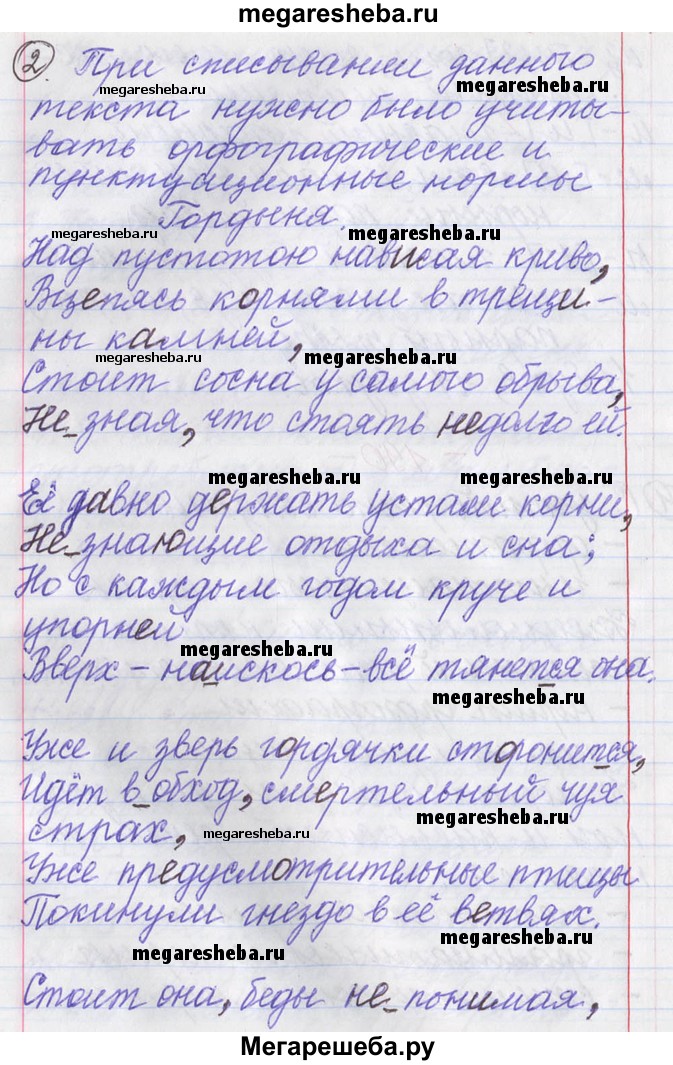 megaresheba.ru
2 При списывании данного
megaresheba.ru
megaresheba.ru
текста нужно было учиты-
вать орфографические и
пунктуационные нормы
Гордыня.
megaresheba.ru
megaresheba.ru
Над пустотою нависая криво,
Вцепясь корнями в трещи-
ны камней,
megaresheba.ru
megaresheba.ru
Стоит сосна у самого обрыва,
Не_зная, что стоять недолго ей.
megaresheba.ru
megaresheba.ru
Её давно держать устали корни,
Не_знающие отдыха и сна;
Но с каждым годом круче и
упорней
megaresheba.ru
Вверх – наискось – всё тянется она.
megaresheba.ru
megaresheba.ru
Уже и зверь гордячки сторонится,
Идёт в_обход, смертельный чуя
страх,
megaresheba.ru
megaresheba.ru
Уже предусмотрительные птицы
Покинули гнездо в её ветвях.
megaresheba.ru
megaresheba.ru
Стоит она, беды не_понимая,
Мегарешеба.ру